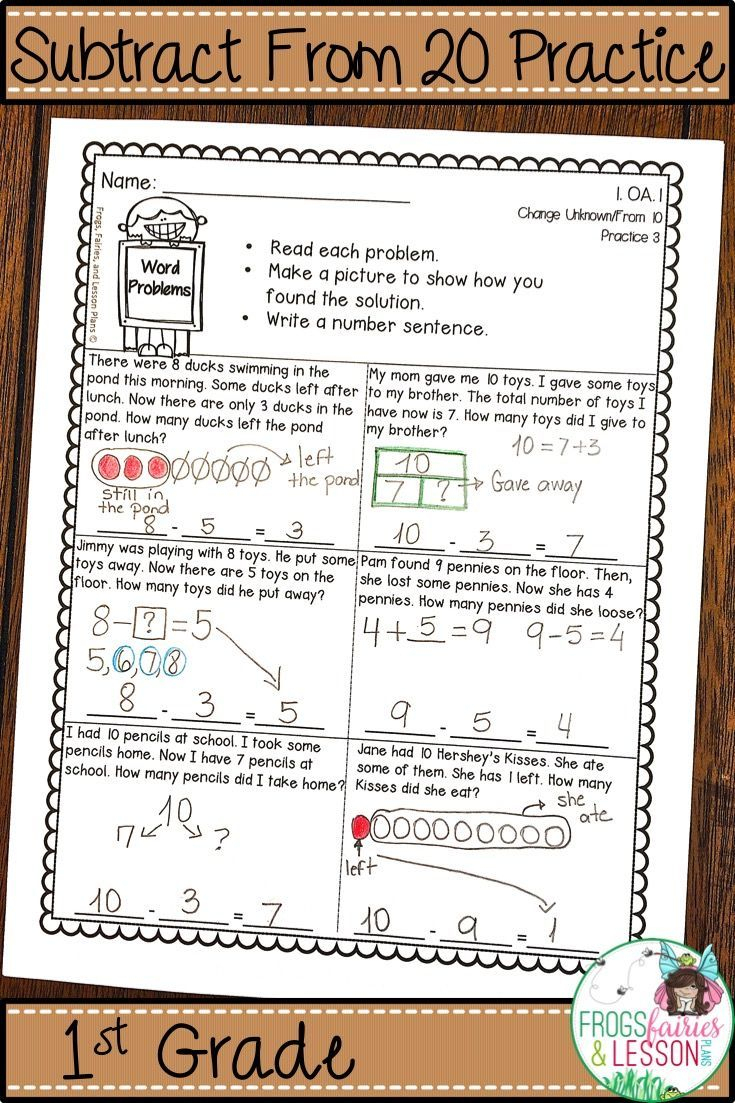 Subtract From 20 Practice
Name:
1. OA. 1
Change Unknown/From 10
Practice 3
Frogs, Fairies, and Lesson Plans ©
Word
Problems
• Read each problem.
• Make a picture to show how you
found the solution.
• Write a number sentence.
There were 8 ducks swimming in the
pond this morning. Some ducks left after
lunch. Now there are only 3 ducks in the
pond. How many ducks left the pond
after lunch?
left
the pond
still in
the pond
8 - 5 = 3
My mom gave me 10 toys. I gave some toys
to my brother. The total number of toys I
have now is 7. How many toys did I give to
my brother?
10 = 7+3
10
7 ? Gave away
10 - 3 = 7
Jimmy was playing with 8 toys. He put some
toys away. Now there are 5 toys on the
floor. How many toys did he put away?
8 - ? = 5
5, 6, 7, 8
8 - 3 = 5
Pam found 9 pennies on the floor. Then,
she lost some pennies. Now she has 4
pennies. How many pennies did she loose?
4 + 5 = 9 9-5=4
9 - 5 = 4
I had 10 pencils at school. I took some
pencils home. Now I have 7 pencils at
school. How many pencils did I take home?
10
7 ?
10 - 3 = 7
Jane had 10 Hershey's Kisses. She ate
some of them. She has 1 left. How many
Kisses did she eat?
she
ate
left
10 - 9 = 1
1st Grade
FROGS fairies
& LESSON PLANS